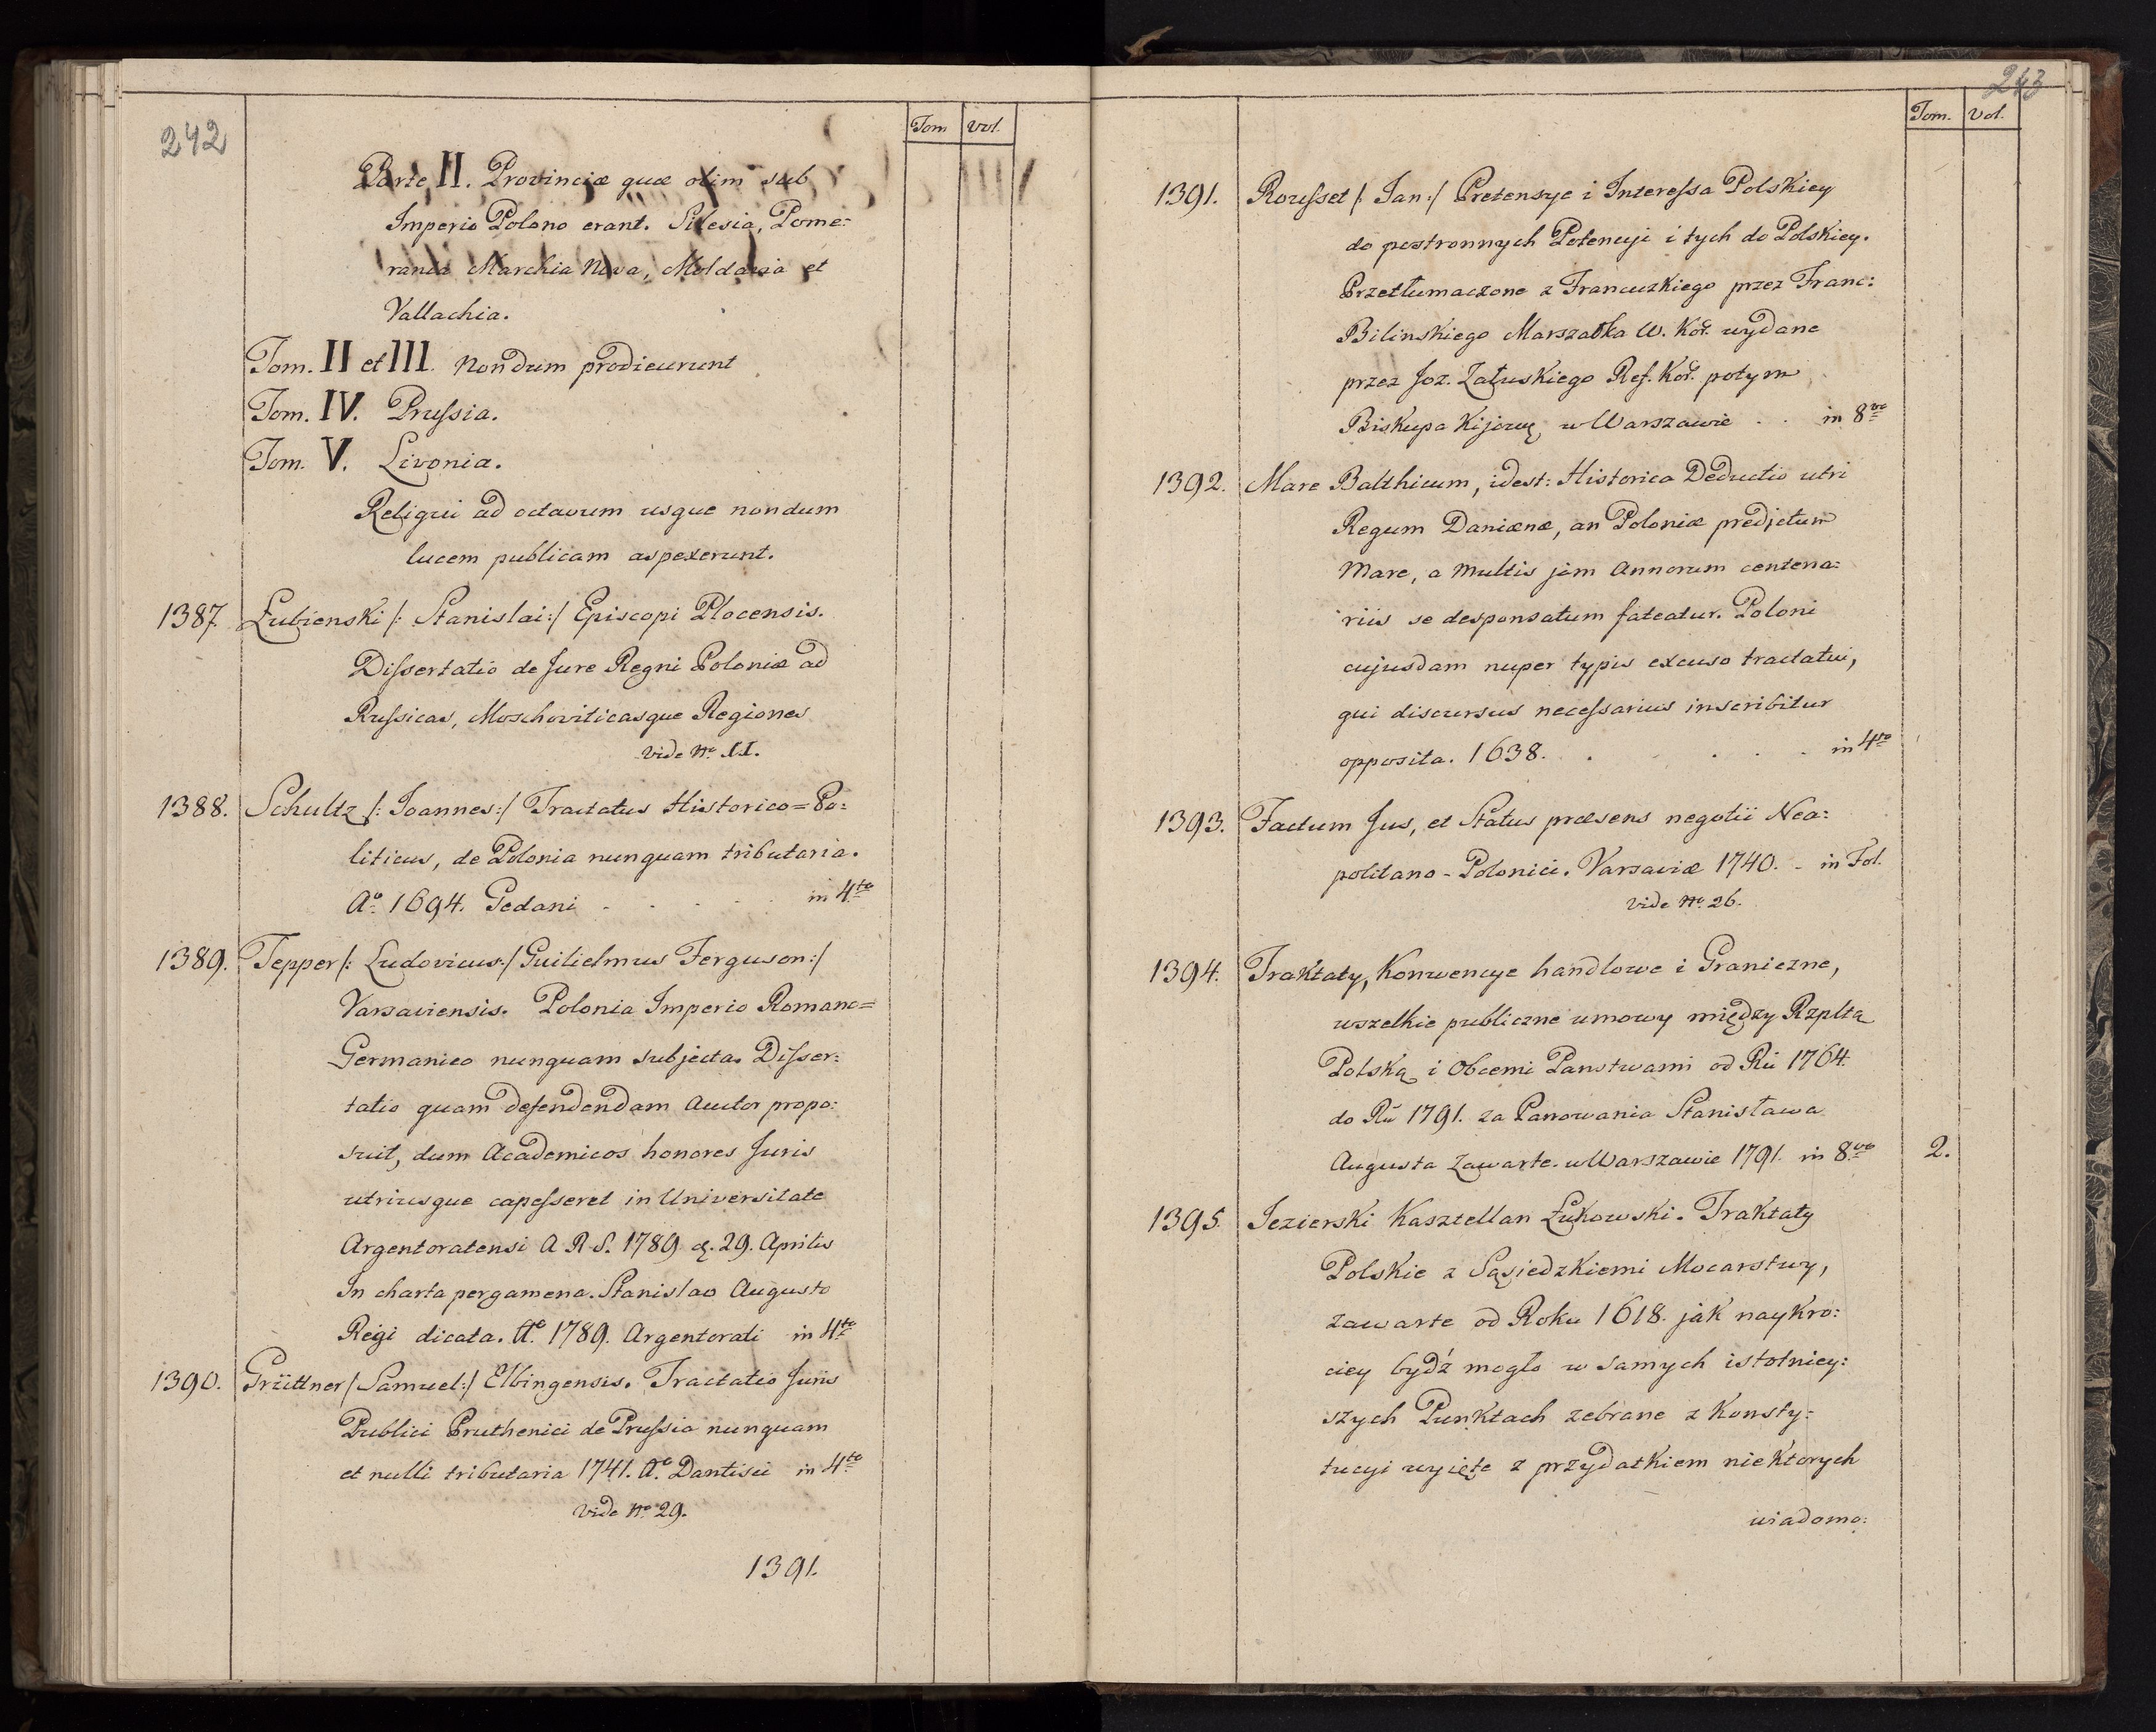 242
Tom Vol.
Parte II. Provinciæ quæ olim sub
Imperio Polono erant. Silesia, Pome:
rania Marchia Nova, Moldavia et
Vallachia.
Tom. II et III. Nondum prodieurunt
Tom. IV. Prussia.
Tom. V. Livonia.
Religui ad octavum usque nondum
lucem publicam aspexerunt.
1387. Łubienski /: Stanislai :/ Episcopi Plocensis.
Dissertatio de Jure Regni Poloniæ ad
Russicas, Moschoviticasque Regiones
vide No. II.
1388. Schultz /: Joannes :/ Tractatus Historico=Po:
liticus, de Polonia nunquam tributaria.
Ao. 1694. Gedani . . . . . in 4to
1389. Tepper /: Ludovicus :/ Guilielmus Ferguson :/
Varsaviensis. Polonia Imperio Romano=
Germanico nunquam subjecta. Disser:
tatio quam defendendam Auctor propo:
suit, dum Academicos honores Juris
utriusque capesseret in Universitate
Argentoratensi A. R. S. 1789 d. 29. Aprilis
In charta pergamena. Stanislao Augusto
Regi dicata. Ao. 1789. Argentorati in 4to
1390. Grüttner /: Samuel :/ Elbingensis. Tractatio Juris
Publici Pruthenici de Prussia nunquam
et nulli tributaria 1741. Ao. Dantisci in 4to
vide No. 29.
1391.
243
Tom. Vol.
1391. Rousset /: Jan :/ Pretensye i Interessa Polskiey
do postronnych Potencyi i tych do Polskiey.
Przetłumaczone z Francuzkiego przez Franc:
Bilinskiego Marszałka W. Kor. wydane
przez Joz. Załuskiego Ref. Kor. potym
Biskupa Kijows, w Warszawie . . in 8vo
1392. Mare Balthicum, idest: Historica Deductio utri
Regum Daniænæ, an Poloniæ predjetum
Mare, a multis jam Annorum centena:
riis se desponsatum fateatur. Poloni
cujusdam nuper typis excuso tractatui,
qui discursus necessarius inscribitur
opposita. 1638. . . . . in 4to
1393. Factum Jus, et Status præsens negotii Nea:
politano - Polonici. Varsaviæ 1740. - in Fol.
vide No. 26.
1394. Traktaty, Konwencye handlowe i Graniczne,
wszelkie publiczne umowy między Rzpltą
Polską i Obcemi Panstwami od Ru 1764.
do Ru 1791. za Panowania Stanisława
Augusta zawarte. w Warszawie 1791. in 8vo 2.
1395. Jezierski Kasztellan Łukowski. Traktaty
Polskie z Sąsiedzkiemi Mocarstwy,
zawarte od Roku 1618. jak naykro:
ciey bydź mogło w samych istotniey:
szych Punktach zebrane z Konsty:
tucyi wyięte z przydatkiem niektorych
wiadomo: